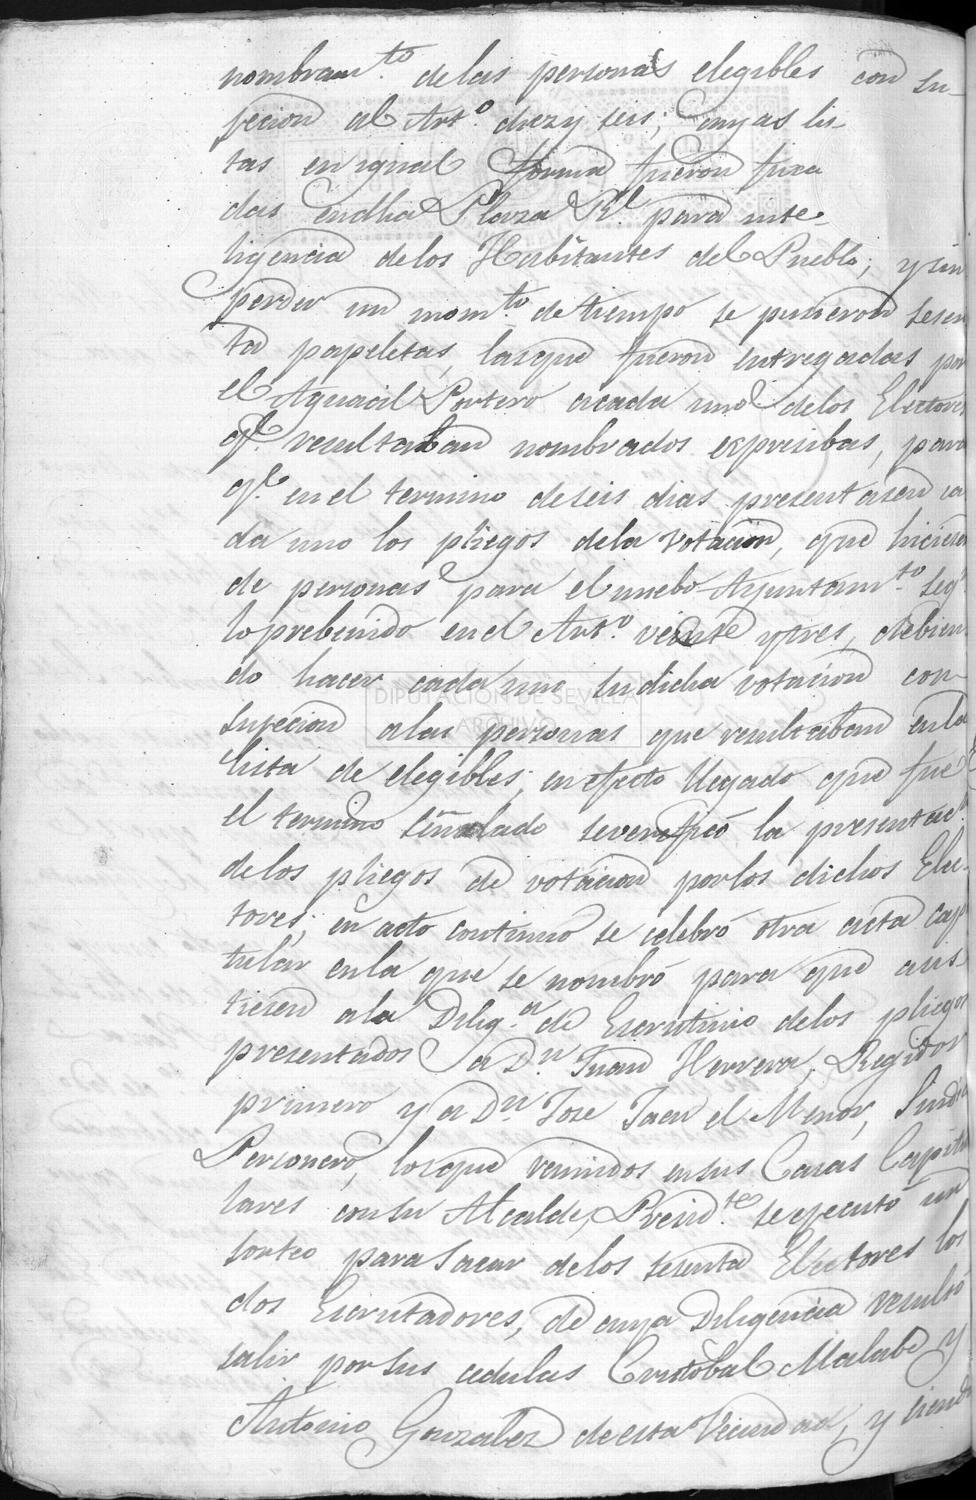 nombram.to delas personas elegibles con su-
jecion al Art.o diez y seis; cuyas lis-
tas en igual forma fueron fixa
das endha Plaza R.l para inte-
ligencia delos Habitantes del Pueblo; y sin
perder un mom.to de tiempo se pusieron sesen
ta papeletas, lasque fueron entregadas por
el Aguacil Portero acada uno delos Electores
q.e resultaban nombrados expresibas, para
q.e en el termino deseis dias presentasen ca
da uno los pliegos dela votacion, que hiciesen
de personas para el nuebo Ayuntam.to seg.n
lo prebenido en el Art.o veinte y tres, debien
do hacer cada uno su dicha votacion con
sujecion alas personas que resultaban enla
lista de elegibles; en efecto llegado que fue
el termino señalado severificó la presentac.n
delos pliegos de votacion porlos dichos Elec-
tores; en acto continuo se celebró otra acta capi
tular enla que se nombró para que asis
tiesen ala Dilig.a de Escrutinio delos pliegos
presentados a D.n Juan Herrera, Regidor
primero y a D.n Jose Jaen el Menor, Sindico
Personero, losque reunidos ensus Casas Capitu
lares consu Alcalde Presid.te se ejecutó un
sorteo para sacar delos sesenta Electores los
dos Escrutadores, de cuya Diligencia resultó
salir por sus cedulas Cristobal Malabe y
Antonio Gonzalez deesta Vecindad, y siendo
DIPUTACIÓN DE SEVILLA
ARCHIVO